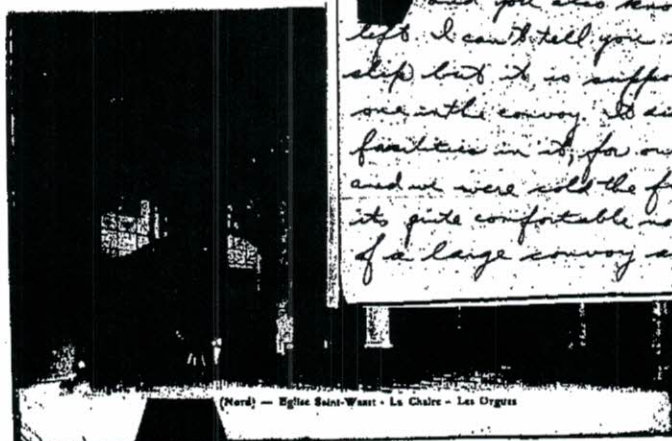 and you also kno
left. I can't tell you
ship but it is suppo
one in the convoy. It di
facilities in it, for ou
and we were cold the f
its quite comfortable no
of a large convoy a
(Nord) — Eglise Saint-Waast - La Chaire - Les Orgues